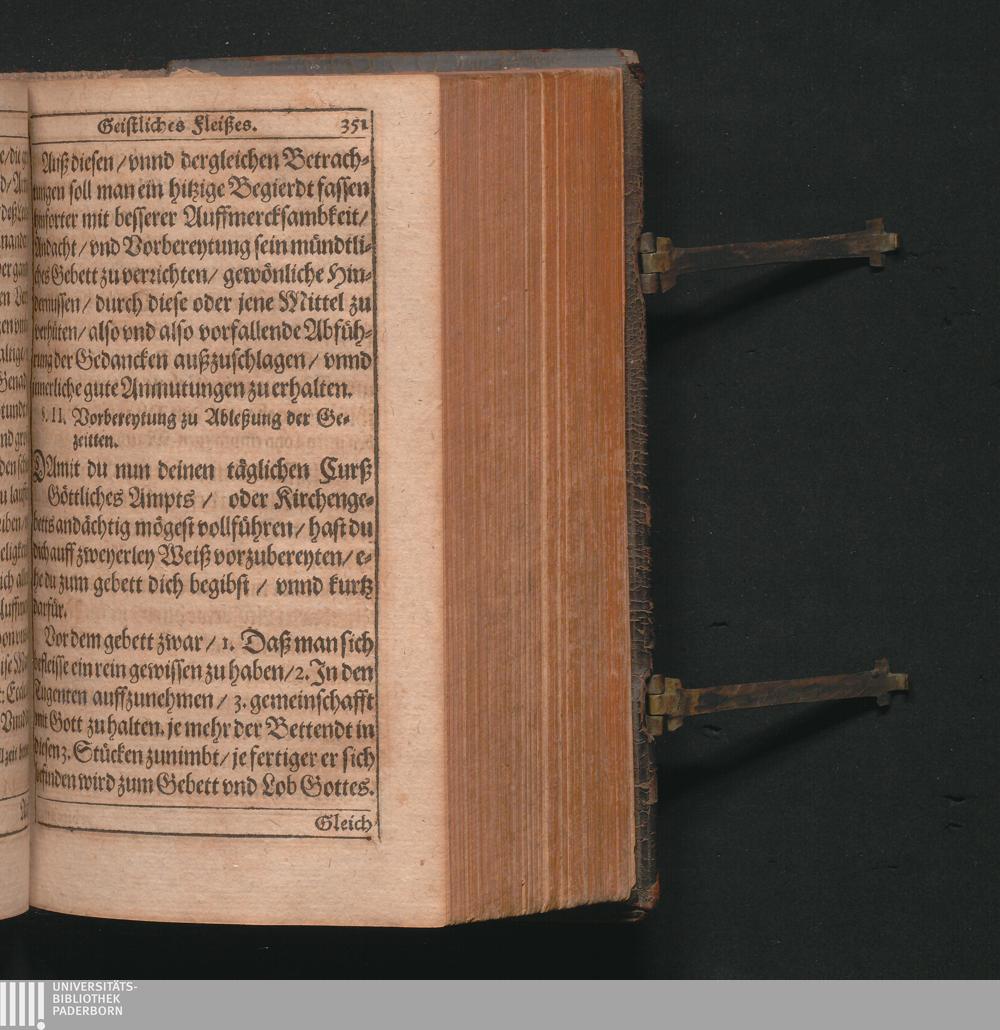 Geistliches Fleißes. 351
Auß diesen / vnnd dergleichen Betrach-
tungen soll man ein hitzige Begierdt fassen
hinforter mit besserer Auffmercksambkeit /
Andacht / vnd Vorbereytung sein mündtli-
ches Gebett zu verrichten / gewönliche Hin-
dernussen / durch diese oder jene Mittel zu
verhüten / also vnd also vorfallende Abfüh-
rung der Gedancken außzuschlagen / vnnd
innerliche gute Anmutungen zu erhalten.
§. II. Vorbereytung zu Ableßung der Ge-
zeitten.
DAmit du nun deinen täglichen Curß
Göttliches Ampts / oder Kirchenge-
betts andächtig mögest vollführen / hast du
dich auff zweyerley Weiß vorzubereyten / e-
he du zum gebett dich begibst / vnnd kurtz
darfür.
Vor dem gebett zwar / 1. Daß man sich
befleisse ein rein gewissen zu haben / 2. In den
Tugenten auffzunehmen / 3. gemeinschafft
mit Gott zu halten. je mehr der Bettendt in
diesen 3. Stücken zunimbt / je fertiger er sich
befinden wird zum Gebett vnd Lob Gottes.
Gleich
UNIVERSITÄTS-
BIBLIOTHEK
PADERBORN